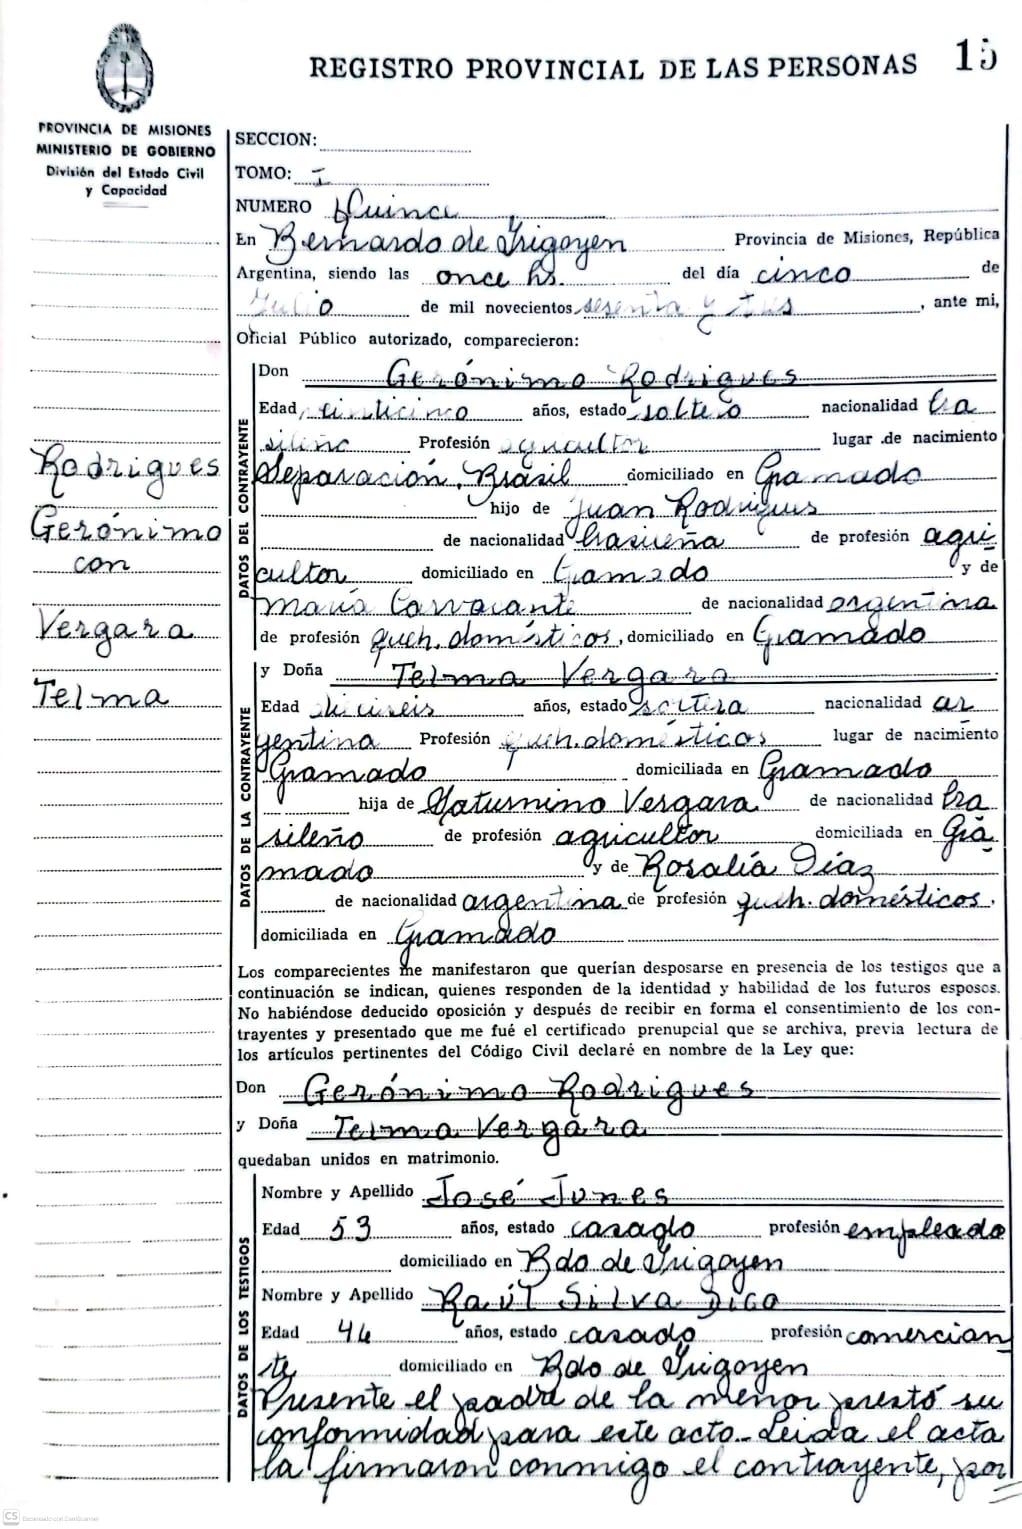 REGISTRO PROVINCIAL DE LAS PERSONAS 15
PROVINCIA DE MISIONES
MINISTERIO DE GOBIERNO
División del Estado Civil
y Capacidad
Rodrigues
Gerónimo
con
Vergara
Telma
SECCION:
TOMO: I
NUMERO Quince
En Bernardo de Irigoyen Provincia de Misiones, República
Argentina, siendo las once hs. del día cinco de
Julio de mil novecientos sesenta y tres, ante mi,
Oficial Público autorizado, comparecieron:
DATOS DEL CONTRAYENTE
Don Gerónimo Rodrigues
Edad veinticinco años, estado soltero nacionalidad bra
sileña Profesión agricultor lugar de nacimiento
Separación, Brasil domiciliado en Gramado
hijo de Juan Rodrigues
de nacionalidad brasileña de profesión agri
cultor domiciliado en Gramado y de
María de nacionalidad argentina
de profesión queh. domésticos, domiciliado en Gramado
DATOS DE LA CONTRAYENTE
y Doña Telma Vergara
Edad dieciseis años, estado soltera nacionalidad ar
gentina Profesión queh. domésticos lugar de nacimiento
Gramado domiciliada en Gramado
hija de Saturnino Vergara de nacionalidad bra
sileño de profesión agricultor domiciliada en Gra
mado y de Rosalía Díaz
de nacionalidad argentina de profesión queh. domésticos.
domiciliada en Gramado
Los comparecientes me manifestaron que querían desposarse en presencia de los testigos que a
continuación se indican, quienes responden de la identidad y habilidad de los futuros esposos.
No habiéndose deducido oposición y después de recibir en forma el consentimiento de los con-
trayentes y presentado que me fué el certificado prenupcial que se archiva, previa lectura de
los artículos pertinentes del Código Civil declaré en nombre de la Ley que:
Don Gerónimo Rodrigues
y Doña Telma Vergara
quedaban unidos en matrimonio.
DATOS DE LOS TESTIGOS
Nombre y Apellido José Junes
Edad 53 años, estado casado profesión empleado
domiciliado en Bdo de Irigoyen
Nombre y Apellido Raúl Silva Dico
Edad 46 años, estado casado profesión comercian
te domiciliado en Bdo de Irigoyen
Presente el padre de la menor prestó su
conformidad para este acto.- Leida el acta
la firmaron conmigo el contrayente, por
CS Escaneado con CamScanner